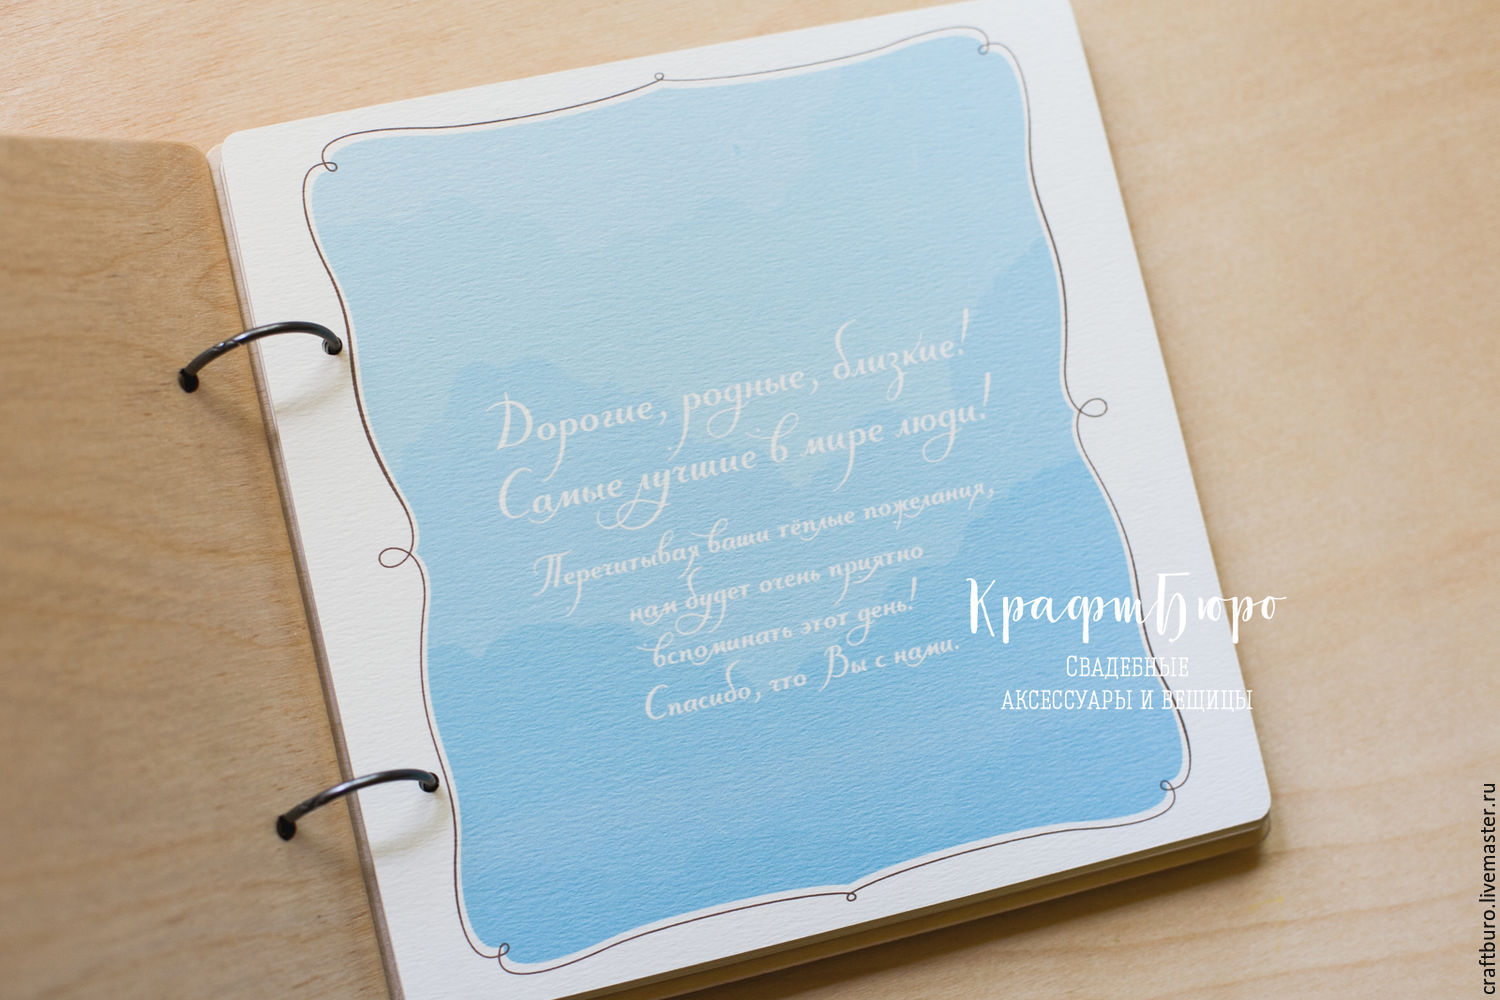 Дорогие, родные, близкие!
Самые лучшие в мире люди!
Перечитывая ваши тёплые пожелания,
нам будет очень приятно
вспоминать этот день!
Спасибо, что Вы с нами.
КрафтБюро
Свадебные
аксессуары и вещицы
craftburo.livemaster.ru